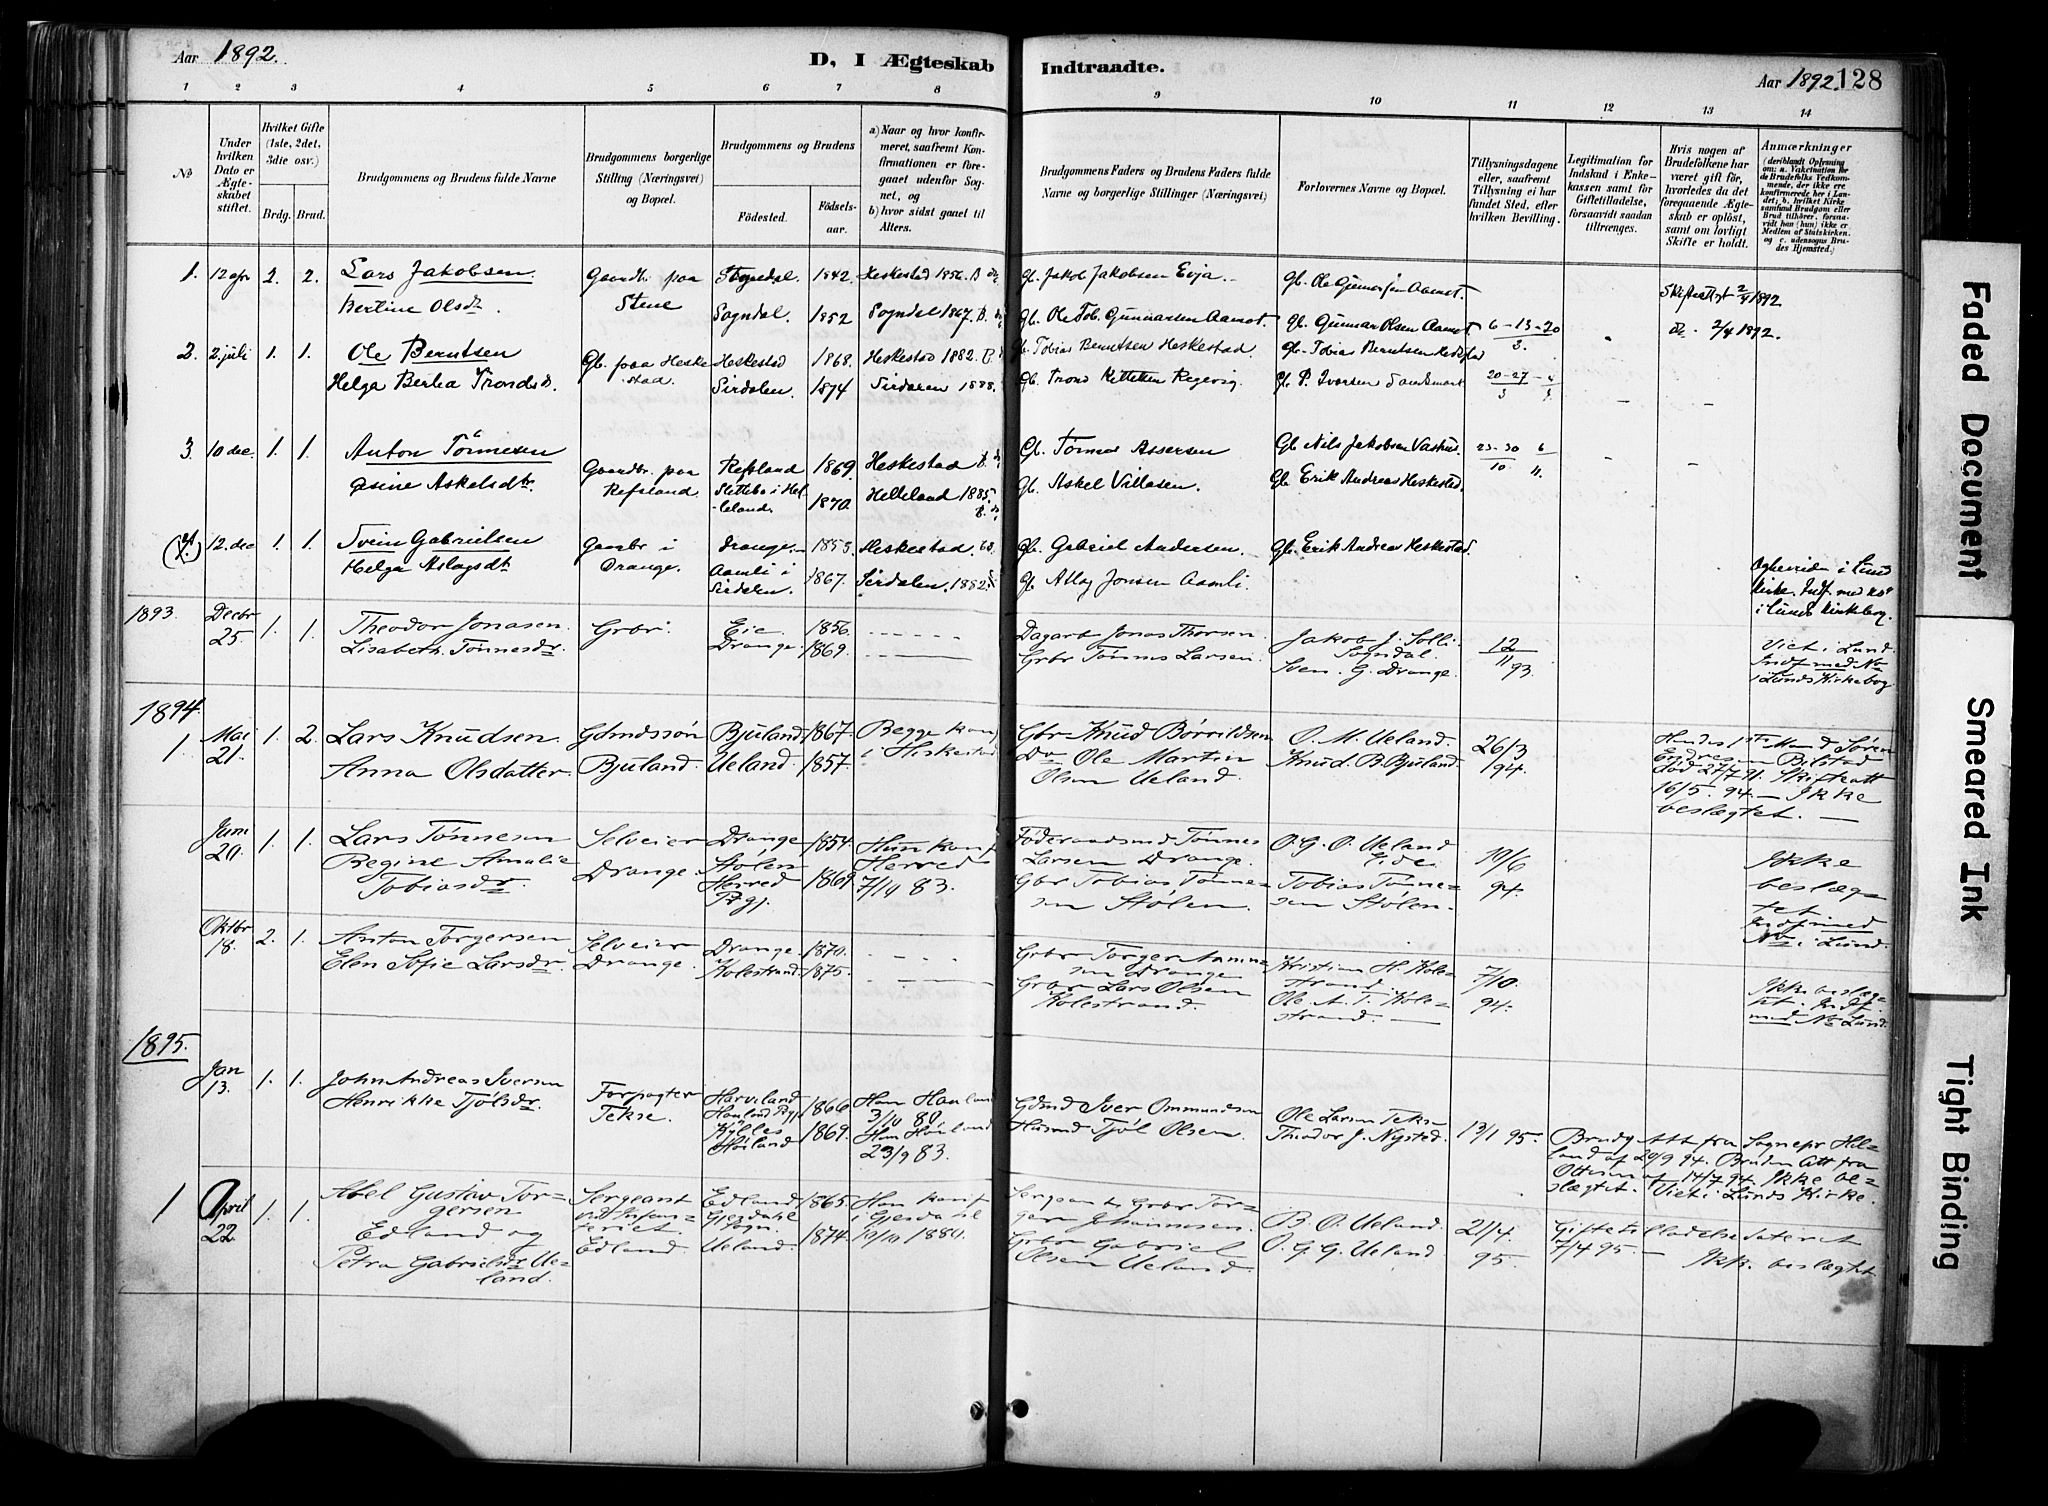 Aar 1892.
D, I Ægteskab Indtraadte.
Aar 1892. 128
1 2 3 4 5 6 7 8 9 10 11 12 13 14
No
Under hvilken Dato er Ægteskabet stiftet.
Hvilket Gifte (1ste, 2det, 3die osv.)
Brdg. Brud.
Brudgommens og Brudens fulde Navne
Brudgommens borgerlige Stilling (Næringsvei) og Bopæl.
Brudgommens og Brudens
Födested.
Födselsaar.
a) Naar og hvor konfirmeret, saafremt Konfirmationen er foregaaet udenfor Sognet, og
b) hvor sidst gaaet til Alters.
Brudgommens Faders og Brudens Faders fulde Navne og borgerlige Stillinger (Næringsvei)
Forlovernes Navne og Bopæl.
Tillysningsdagene eller, saafremt Tillysning ei har fundet Sted, efter hvilken Bevilling.
Legitimation for Indskud i Enkekassen samt for Giftetilladelse, forsaavidt saadan tiltrænges.
Hvis nogen af Brudefolkene har været gift før, hvorledes da det foregaaende Ægteskab er oplöst, samt om lovligt Skifte er holdt.
Anmærkninger (deriblandt Oplysning om: a. Vakcination for de Brudefolks Vedkommende, der ikke ere konfirmerede her i Landet; b. hvilket Kirkesamfund Brudgom eller Brud tilhörer, forsaavidt han (hun) ikke er Medlem af Statskirken, og c. udensogns Brudes Hjemsted.
1. 12 apr 2. 2. Lars Jakobsen Gaardb. paa Stene Sogndal. 1842. Heskestad 1856. Gb. Jakob Jakobsen Evja. Gb. Ole Gunnarsen Aamot. Skifteattest 2/4 1892
Bertine Olsdtr. Sogndal. 1852 Sogndal 1867. Gb. Ole Tob. Gunnarsen Aamot. Gb. Gunnar Olsen Aamot 6-13-20/3. do. 2/4 1892.
2. 2 juli 1. 1. Ole Berntsen Gb. paa Heskestad. Heskestad 1868. Heskestad 1882. Gb. Tobias Berntsen Heskestad. Gb. Tobias Berntsen Heskestad
Helga Bertea Trondsd. Sirdalen. 1874 Sirdalen 1888. Gb. Trond Kittelsen Regevig. Gb. P. Ivarsen Sandsmark
3. 10 dec. 1. 1. Anton Tönnesen Gaardbr. paa Refsland. Refsland 1869. Heskestad Gb. Tönnes Assersen Gb Nils Jakobsen Vashus. 23-30/10 6/11.
Gsine Askelsdtr. Slettebo i Helleland 1870. Helleland 1885. Gb. Askel Villasen. Gb. Erik Andreas Heskestad.
12. dec 1. 1. Svein Gabrielsen Gaardbr i Drange. Drange. 1853. Heskestad. Gb. Gabriel Andersen. Gb. Erik Andreas Heskestad.
Helga Aslagsdtr Aamli i Sirdalen. 1867. Sirdalen. 1882. Gb Aslag Jonsen Aamli i Lund Kirke. Indf. med No i Lunds Kirkebog.
1893. Decbr 25. 1. 1. Theodor Jonasen. Grbr. Eie 1856. Dagarb Jonas Thorsen. Jakob J. Solli Sogndal. 12/11 93. Viet i Lund. Indf med No i Lunds Kirkebog
Lisabeth. Tönnesdr. Drange 1869. Grbr Tønnes Larsen. Sven. G. Drange.
1894.
1. Mai 21. 1. 2. Lars Knudsen. Gdmdssön Bjuland. Bjuland 1867. Begge konf i Heskestad Gbr Knud Børrildsen O. M. Ueland. 26/3 94. Hendes 1ste Mand Sören Endresen Bilstad död 27/7 91. Skifteatt 16/5. 94. — Ikke beslægtet. —
Anna Olsdatter. Ueland. 1857. Ole Martin Olsen Ueland. Knud. B. Bjuland.
Juni 20. 1. 1. Lars Tönnesen Selveier Drange. Drange 1854. Hun konf Herred 7/10 83. Föderaadsmd Tönnes Larsen Drange. O. G. O. Ueland Eide. 10/6 94. Ikke beslægtet Indf med No i Lund.
Regine Amalie Tobiasdr. Stölen Herred Prgj. 1869 Gbr Tobias Tønnesen Stölen. Tobias Tønnesen Stölen.
Oktbr 18. 2. 1. Anton Torgersen Selveier Drange. Drange. 1870. Grbr Torger Drange Kristian H. Kolestrand. 7/10. 94. Ikke beslægtet. Indf. med No Lund.
Elen Sofie Larsdr. Kolestrand. 1875. Grbr Lars Olsen Kolestrand. Ole A. T. Kolestrand. —
1895.
Jan 13. 1. 1. John Andreas Iversen Forpagter Tekse. 1866 3/10 80. Gdmd Iver Ommundsen Ole Larsen Tekse 13/1 95. Brudg Att fra Sognepr Helland af 20/9 94. Bruden Att fra 14/7 94. Ikke beslægtet. Viet i Lunds Kirke.
Henrikke Tjölsdr. Höiland 1869. 23/9 83. Husmd Tjöl Olsen. Theodor J. Nysted.
1 April 22. 1. 1. Abel Gustav Torgersen Edland og Sergeant ved Infanteriet. Edland. Edland Gjesdahl Sogn. 1865. Han konf i Gjesdal 10/10 1880. Sergeant Grbr Torger Johannesen. B. O. Ueland. 21/4 95. Giftetilladelse dateret 7/4 95. — Ikke beslægtet
Petra Gabrielsdr Ueland. Ueland. 1874. Grbr Gabriel Olsen Ueland. O. G. G. Ueland
Faded Document
Smeared Ink
Tight Binding